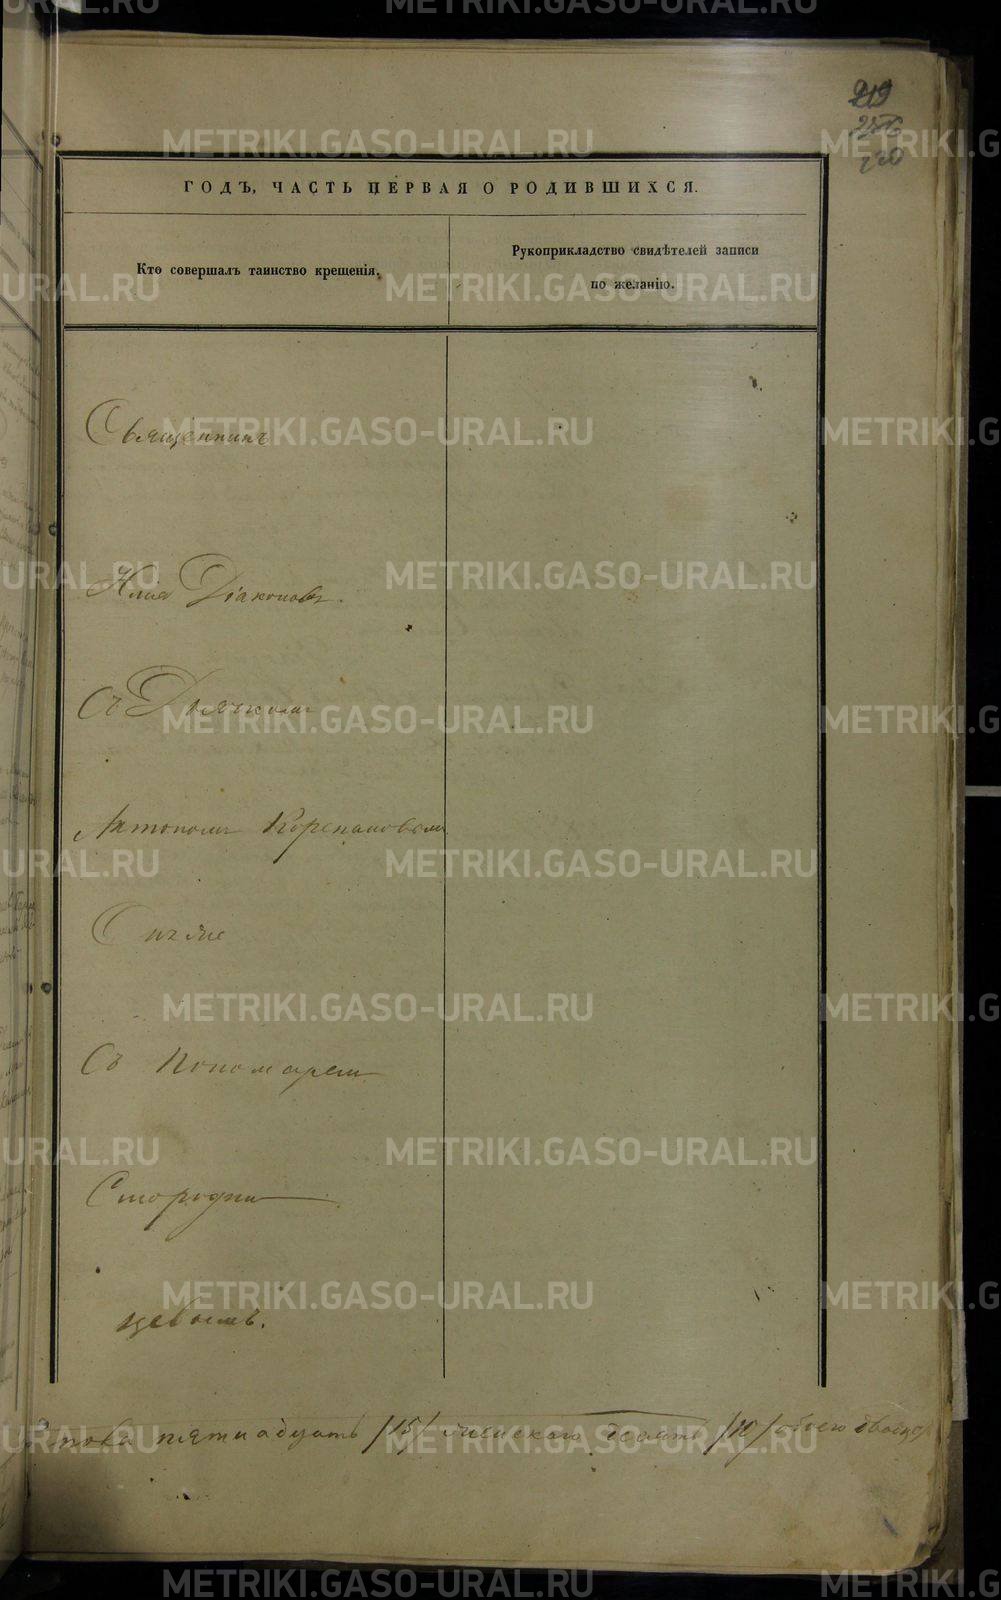 219
220
ГОДЪ, ЧАСТЬ ПЕРВАЯ О РОДИВШИХСЯ.
Кто совершалъ таинство крещенія.
Рукоприкладство свидѣтелей записи
по желанію.
Священникъ
Илія Діаконовъ.
Съ Дьячкомъ
Антономъ Корепановымъ
С
Съ Пономаремъ
Стородни
цевымъ.
пола пятнадцать /15/ женскаго десять /10/ обоего
METRIKI.GASO-URAL.RU